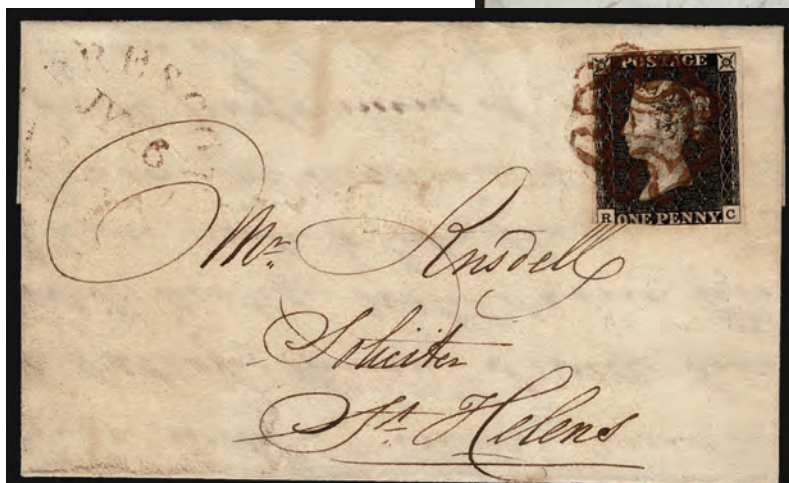 PRESCOT
JY 6
POSTAGE
R ONE PENNY C
Mr. Ansdell
Solicitor
St Helens